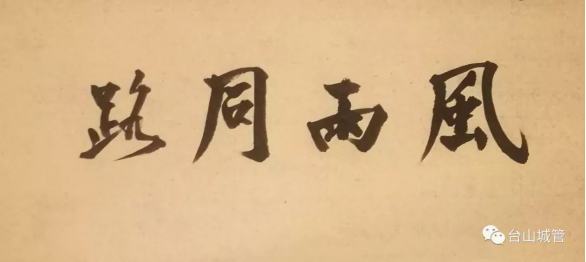 風雨同路
台山城管